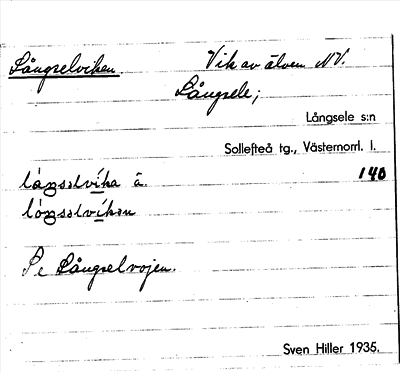 Långselviken. Vik av älven NV.
Långsele;
Långsele s:n
Sollefteå tg., Västernorrl. l.
låŋsəlvika ä. 140
lóŋsəlvíkən
Se Långselnojen.
Sven Hiller 1935.